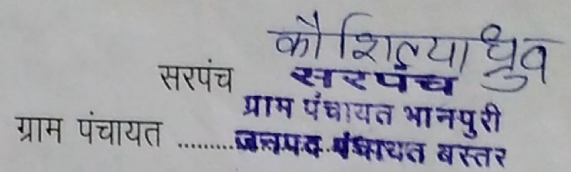 कौशिल्या ध्रुव
सरपंच सरपंच
ग्राम पंचायत भानपुरी
ग्राम पंचायत .........जनपद पंचायत बस्तर